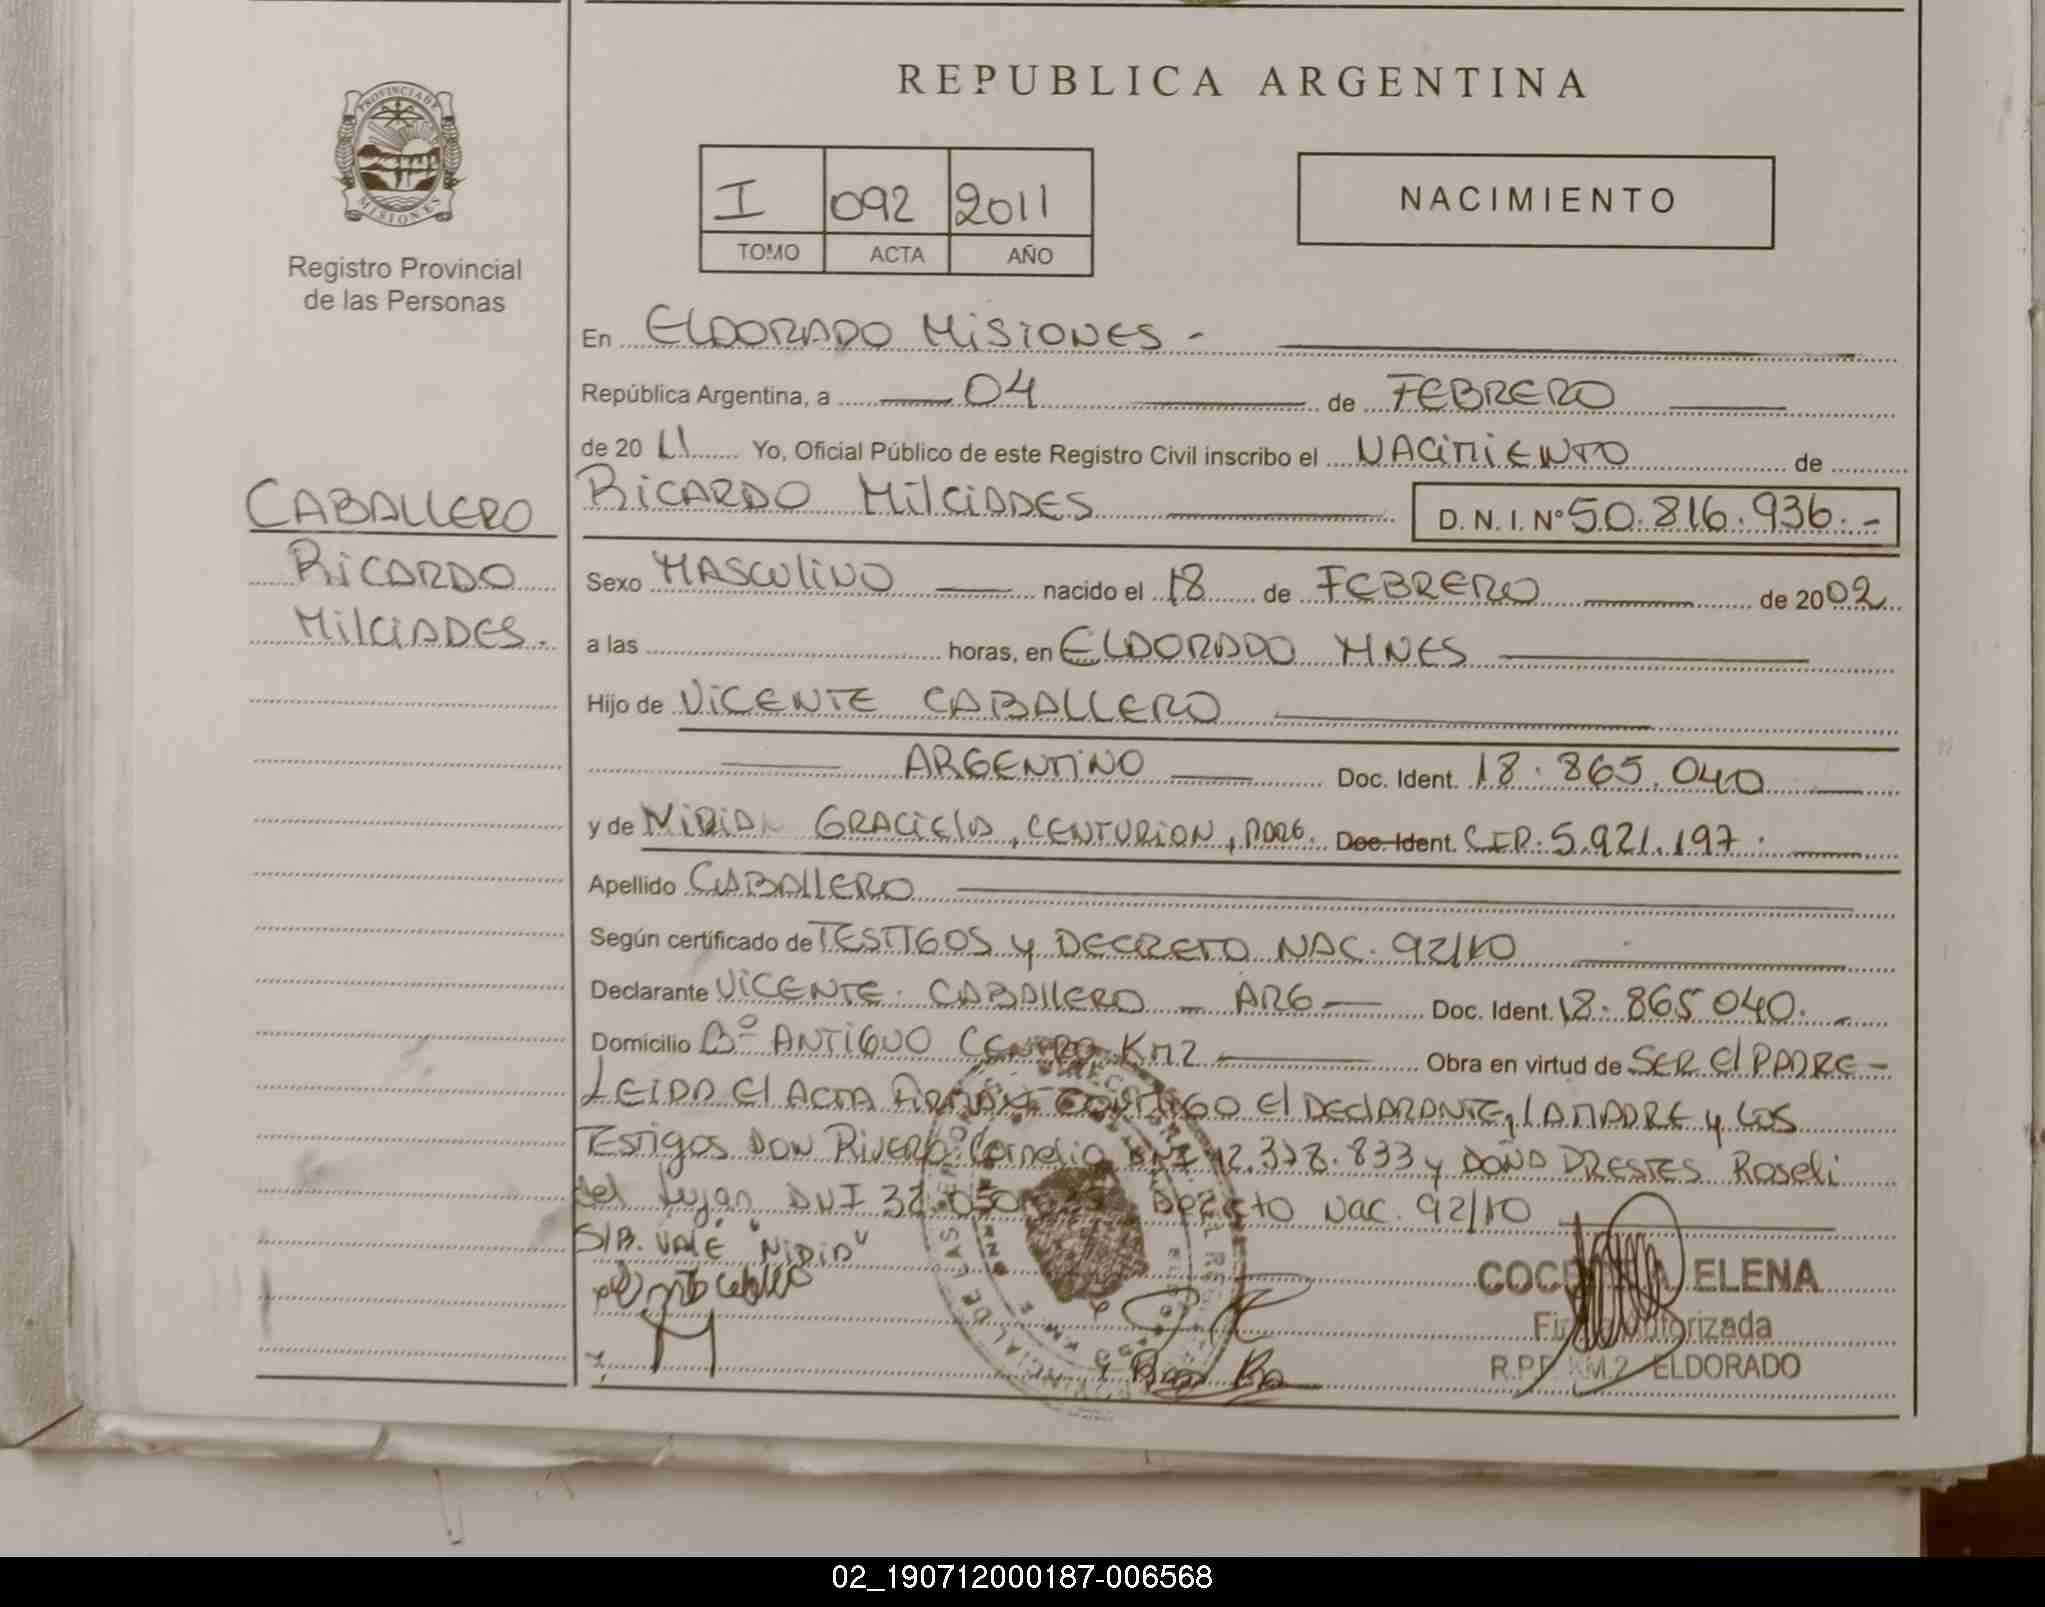 PROVINCIA DE
MISIONES
Registro Provincial
de las Personas
CABALLERO
RICARDO
MILCIADES.
REPUBLICA ARGENTINA
I 092 2011
TOMO ACTA AÑO
NACIMIENTO
En ELDORADO MISIONES -
República Argentina, a 04 de FEBRERO
de 20 11 Yo, Oficial Público de este Registro Civil inscribo el NACIMIENTO de
RICARDO MILCIADES D.N.I. N° 50.816.936.-
Sexo MASCULINO nacido el 18 de FEBRERO de 2002
a las horas, en ELDORADO MNES
Hijo de VICENTE CABALLERO
ARGENTINO Doc. Ident. 18.865.040
y de GRACIELA, CENTURION, PARG. Doc. Ident. C.I.P. 5.921.197.
Apellido CABALLERO
Según certificado de TESTIGOS y DECRETO NAC. 92/10
Declarante VICENTE CABALLERO - ARG Doc. Ident. 18.865040.-
Domicilio B° ANTIGUO CENTRO KM2 Obra en virtud de SER El PADRE-
LEIDA El ACTA FIRMAN CONMIGO El DEClARANTE, LA MADRE y LOS
TESTIGOS DON Rivero Cornelio DNI 12.378.833 y DOÑA DRESTES Roseli
del Lujan DNI 32.050 Decreto Nac. 92/10
S/B. VALE "NIDIA"
ELENA
Firma Autorizada
R.P.P. KM.2 ELDORADO
02_190712000187-006568